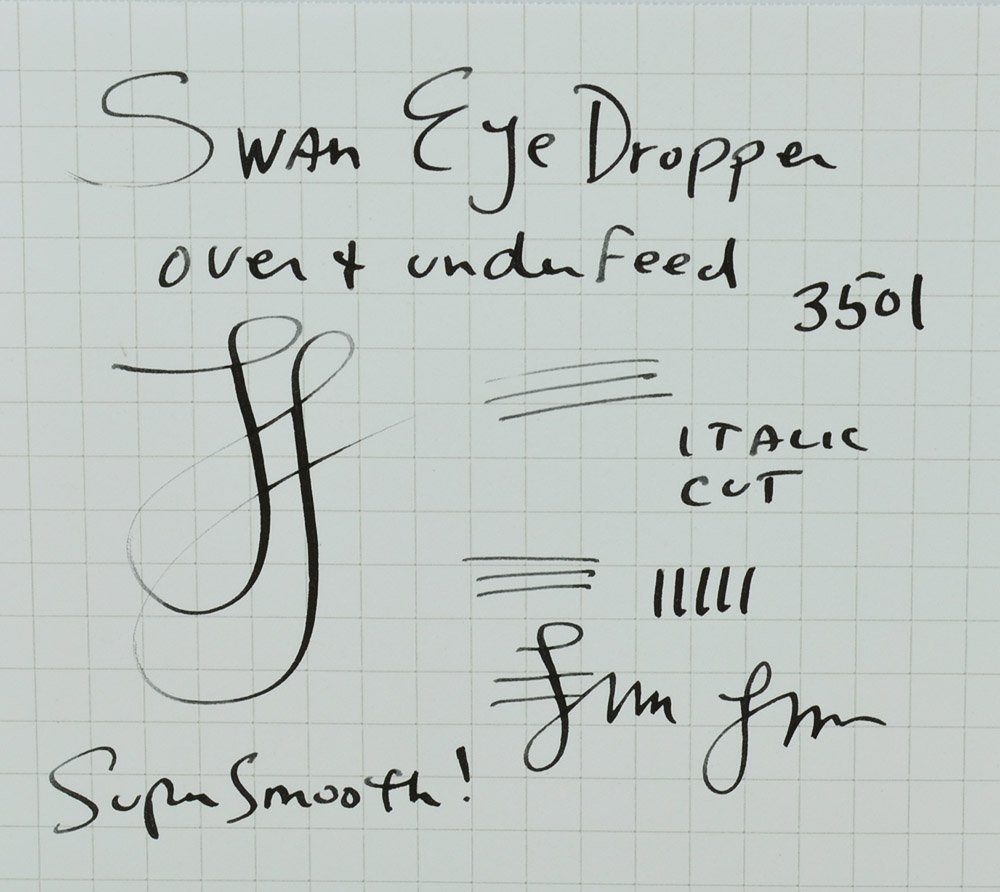 Swan Eye Dropper
over + underfeed
3501
ITALIC
CUT
Super Smooth!